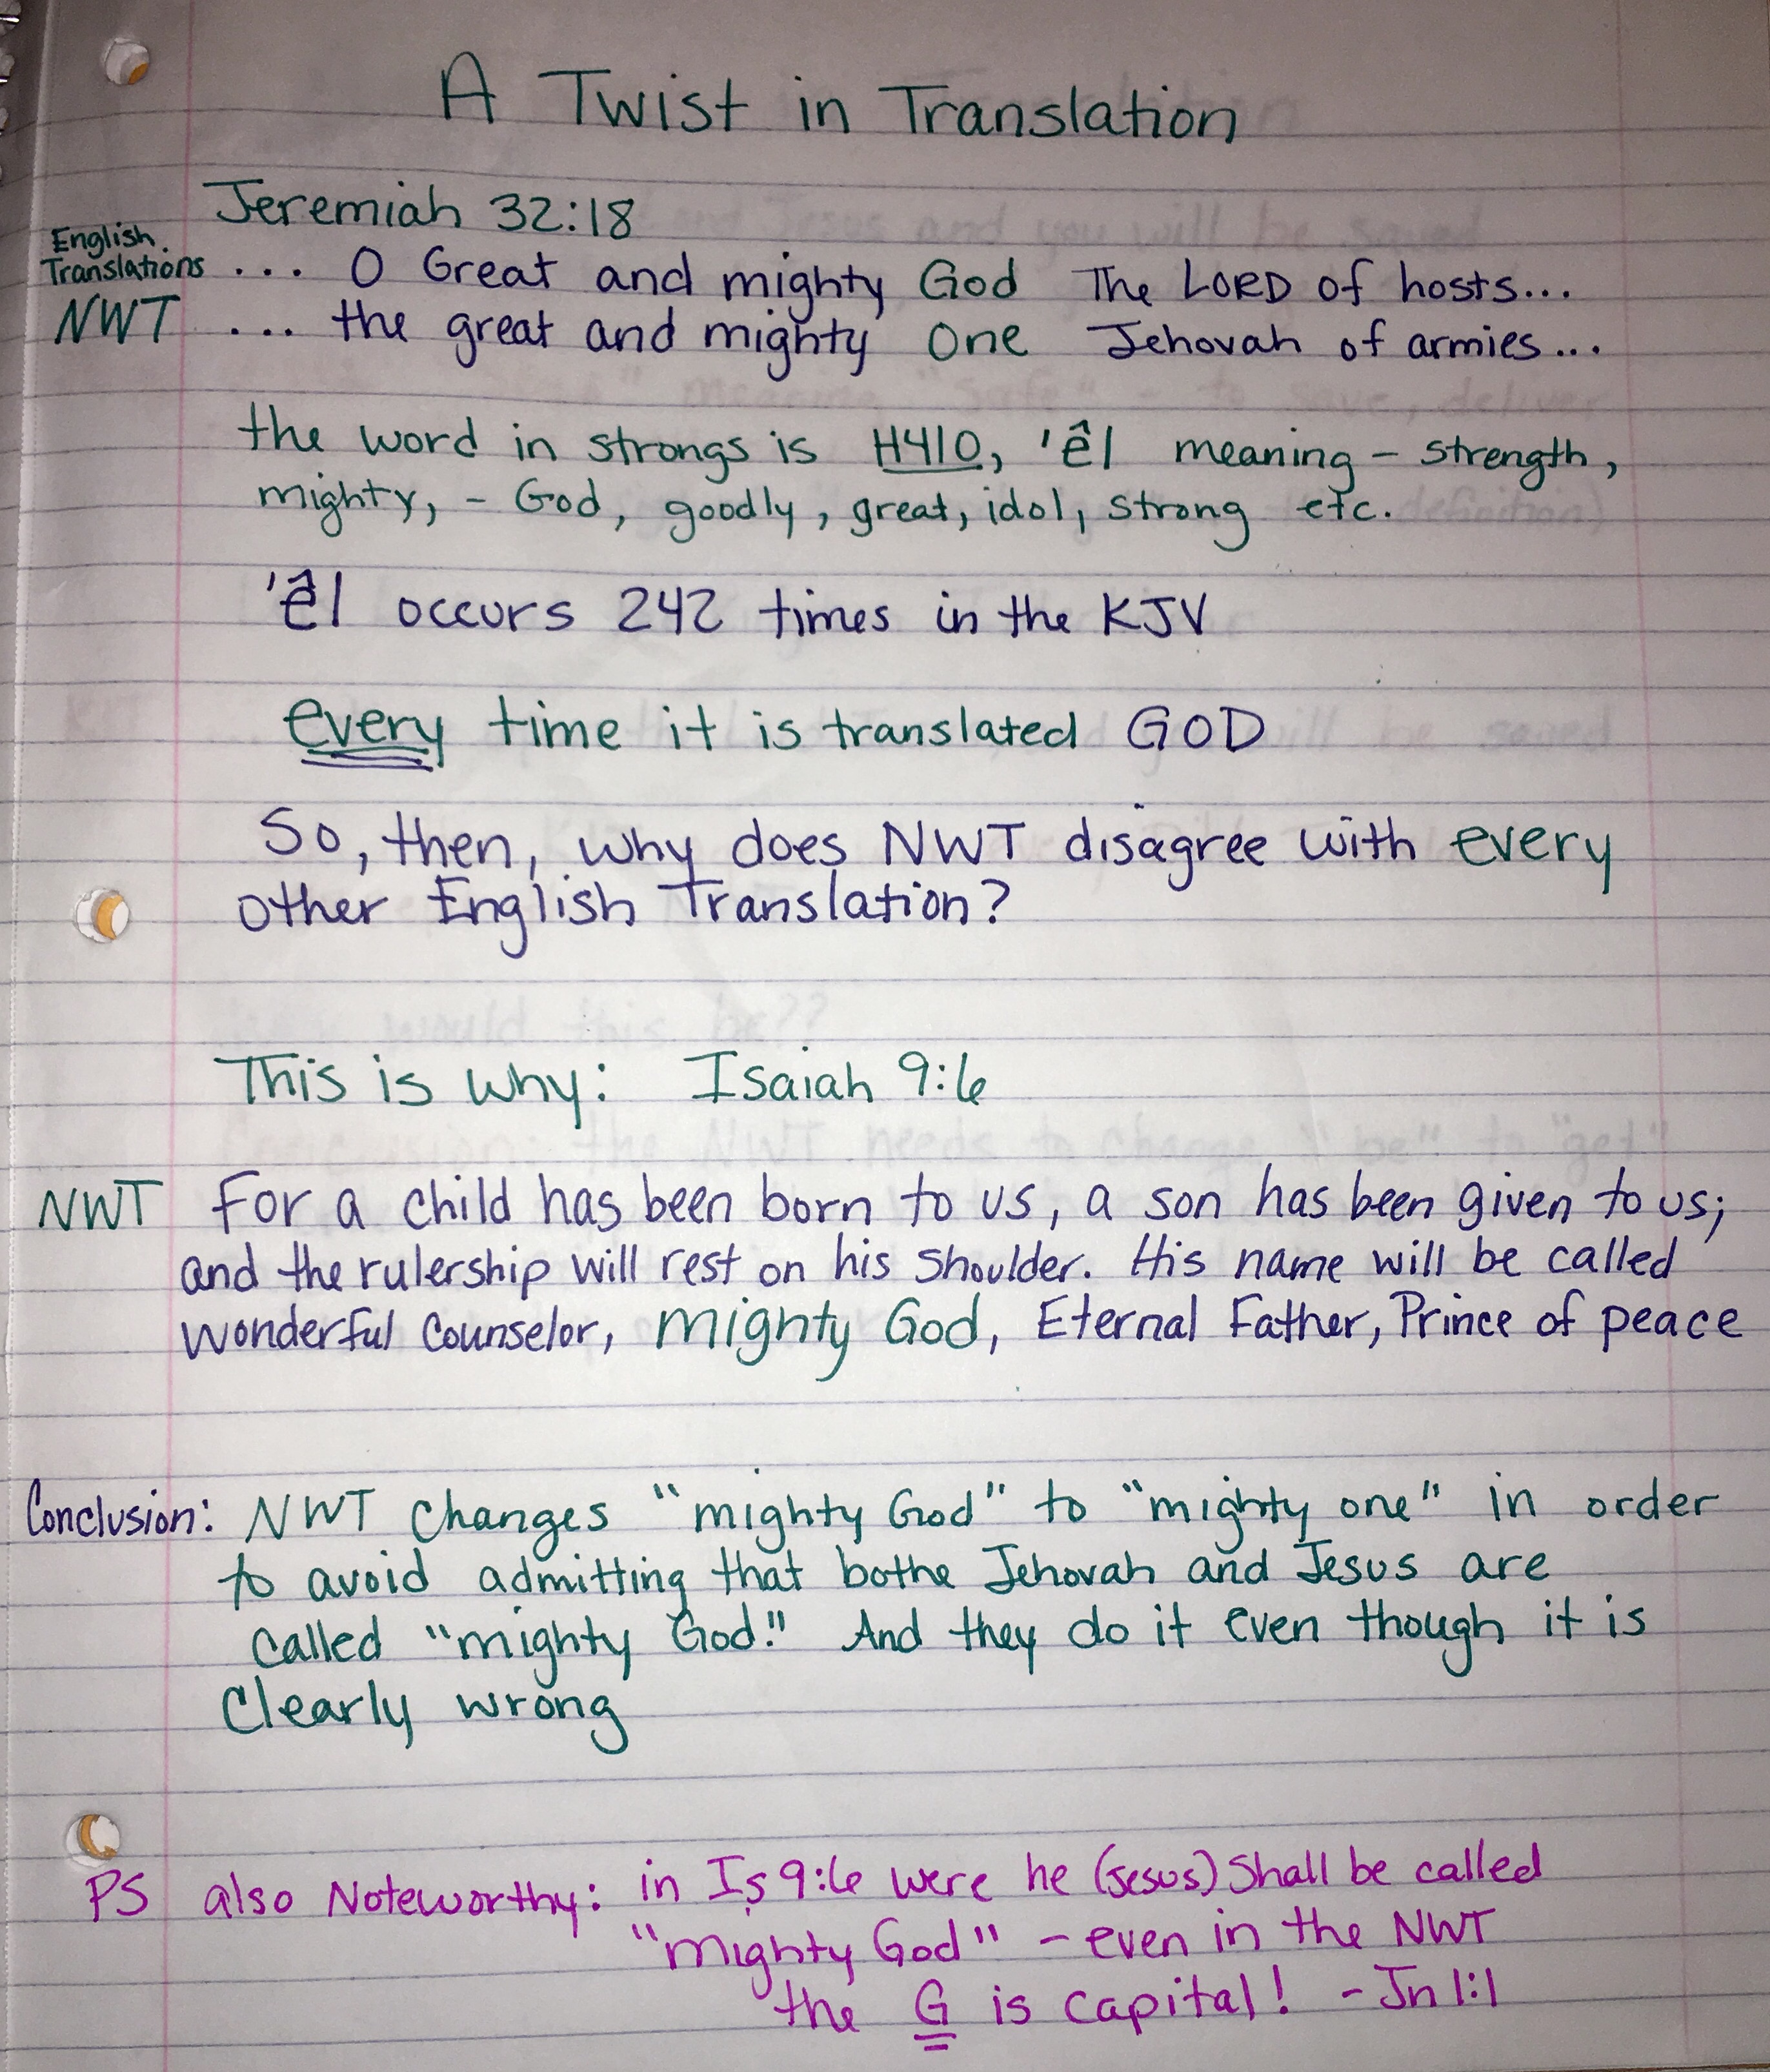 A Twist in Translation
Jeremiah 32:18
English Translations ... O Great and mighty God The LORD of hosts...
NWT ... the great and mighty One Jehovah of armies...
the word in strongs is H410, 'êl meaning - strength,
mighty, - God, goodly, great, idol, strong etc.
'êl occurs 242 times in the KJV
every time it is translated GOD
So, then, why does NWT disagree with every
other English Translation?
This is why: Isaiah 9:6
NWT For a child has been born to us, a son has been given to us;
and the rulership will rest on his shoulder. His name will be called
wonderful Counselor, mighty God, Eternal Father, Prince of peace
Conclusion: NWT changes "mighty God" to "mighty one" in order
to avoid admitting that bothe Jehovah and Jesus are
called "mighty God." And they do it even though it is
clearly wrong
PS also Noteworthy: in Is 9:6 were he (Jesus) Shall be called
"mighty God" - even in the NWT
the G is capital! - Jn 1:1